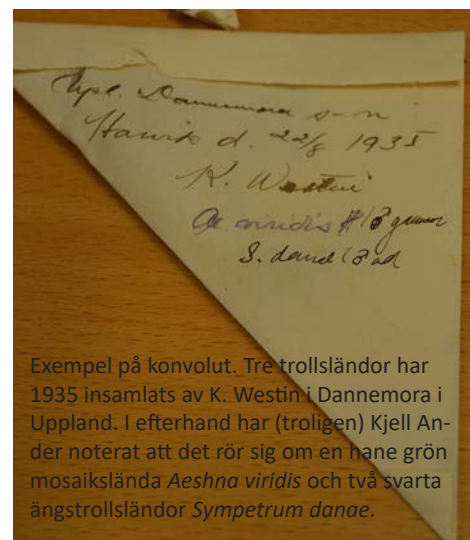 Upl. Dannemora s-n
d. 22/8 1935
K. Westin
Ae viridis 1♂
S. danae 1♂ ad
Exempel på konvolut. Tre trollsländor har
1935 insamlats av K. Westin i Dannemora i
Uppland. I efterhand har (troligen) Kjell An-
der noterat att det rör sig om en hane grön
mosaikslända Aeshna viridis och två svarta
ängstrollsländor Sympetrum danae.